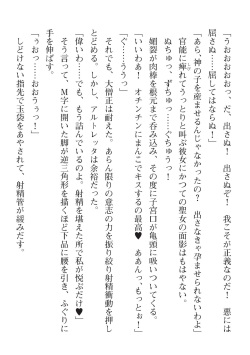 「うおおおおおっ、だ、出さぬ！　出さぬぞ！　我こそが正義なのだ！　悪には
屈さぬ……屈してはならぬ！」
「あら、神の子を産ませるんじゃなかったの？　出さなきゃ孕ませられないわよ」
官能に痺れてうっとりと叫ぶ彼女にかつての聖女の面影はもはやない。
ぬちゅっ、ずちゅっ……ぐちゅうっ！
媚裂が肉棒を根元まで呑み込み、その度に子宮口が亀頭に吸いついてくる。
「いいわぁ！　オチンチンにまんこでキスするの最高♥　ああんっ、もっとぉ！」
「ぐ……ううっ」
それでも、大僧正は耐えた。あらん限りの意志の力を振り絞り射精衝動を押し
とどめる。しかし、アルトレッタは余裕だった。
「偉いわ……でも、もう詰んでいるのよ、射精を堪えた所で私が悦ぶだけ♥」
そう言って、Ｍ字に開いた脚が逆三角形を描くほど下品に腰を引き、ふぐりに
手を伸ばす。
「うぉっ……おおうぅっ！」
しどけない指先で玉袋をあやされて、射精管が緩みだす。